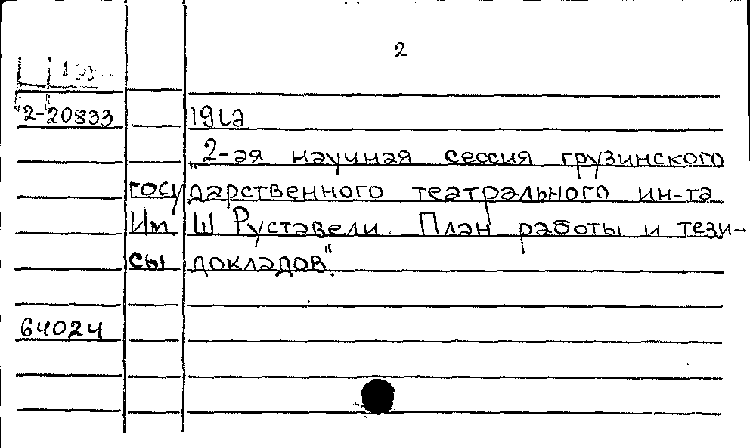 2
2-20833
„2-ая научная сессия грузинского
государственного театрального ин-та
им Ш Руставели. План работы и тези-
сы докладов"
64024